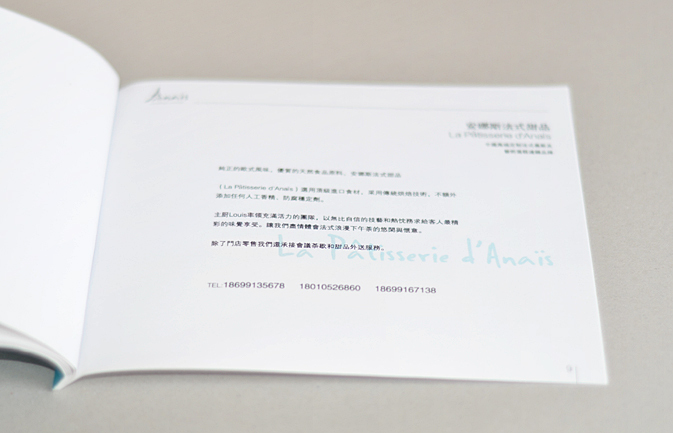 Anaïs
安娜斯法式甜品
La Pâtisserie d'Anaïs
純正的歐式風味，優質的天然食品原料，安娜斯法式甜品
（La Pâtisserie d'Anaïs）選用頂級進口食材，采用傳統烘焙技術，不額外
添加任何人工香精、防腐穩定劑。
主廚Louis率領充滿活力的團隊，以無比自信的技藝和熱忱務求給客人最精
彩的味覺享受。讓我們盡情體會法式浪漫下午茶的悠閑與愜意。
除了門店零售我們還承接會議茶歇和甜品外送服務。
La Pâtisserie d'Anaïs
TEL:18699135678 18010526860 18699167138